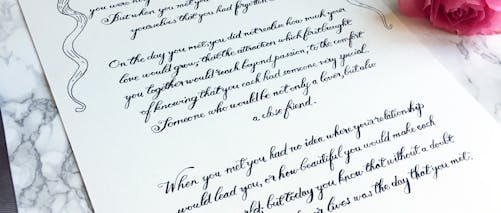 you were
But when you met you
yourselves that you had forgotten
On the day you met, you did not realise how much your
love would grow, that the attraction which first brought
you together would reach beyond passion, to the comfort
of knowing that you each had someone very special.
Someone who would be not only a lover, but also
a close friend.
When you met you had no idea where your relationship
would lead you, or how beautiful you would make each
world; but today you know that without a doubt
lives was the day that you met;